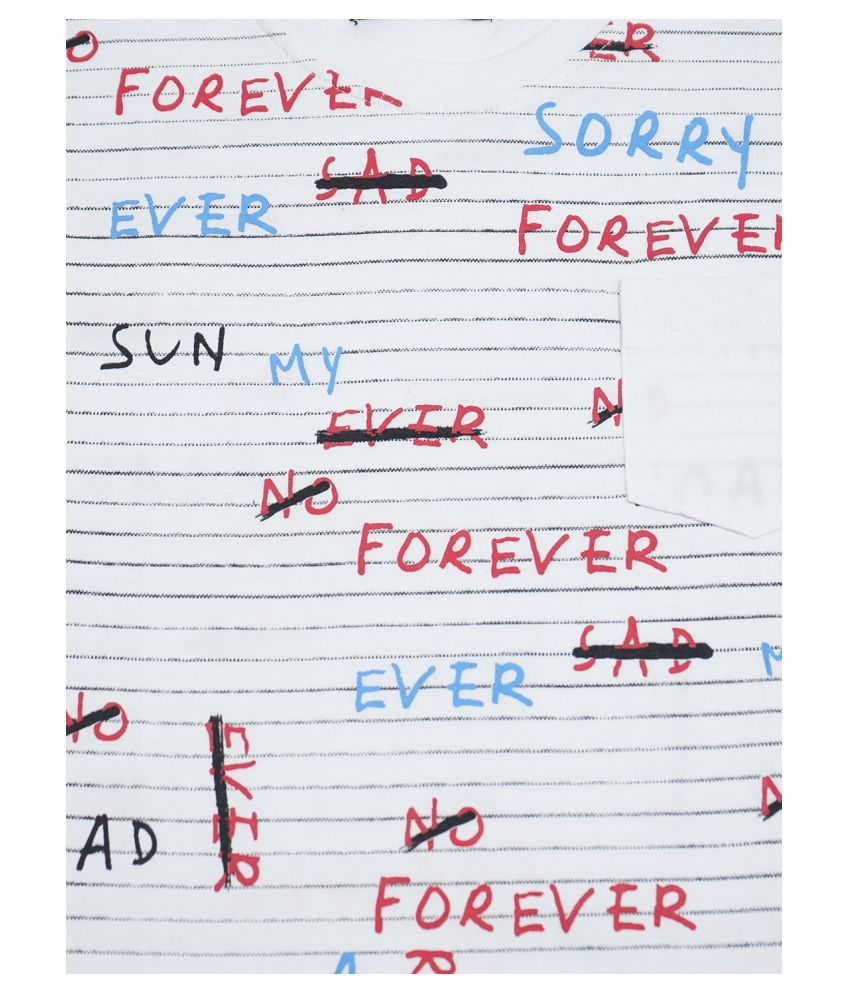 FOREVER
SORRY
SAD
EVER
FOREVER
SUN
MY
EVER
NO
FOREVER
SAD
EVER
NO
EVER
NO
AD
FOREVER